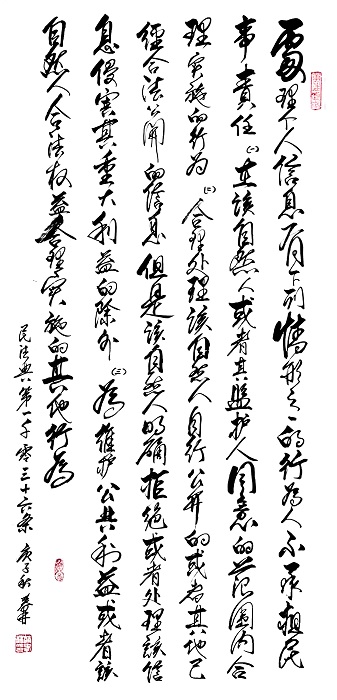 處理个人信息有下列情形之一的行为人不承担民
事責任(一)在該自然人或者其监护人同意的范围内合
理实施的行为(二)合理处理該自然人自行公开的或者其他已
經合法公開的信息但是該自然人明确拒绝或者处理該信
息侵害其重大利益的除外(三)為维护公共利益或者該
自然人合法权益合理实施的其他行為
民法典第一千零三十六条 庚子秋